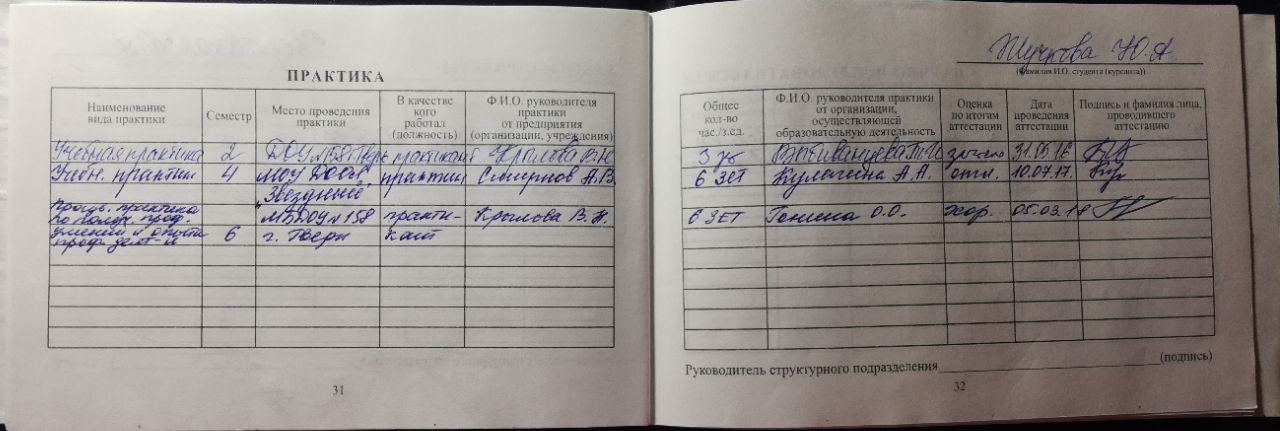 ПРАКТИКА
Наименование вида практики
Семестр
Место проведения практики
В качестве кого работал (должность)
Ф.И.О. руководителя практики от предприятия (организации, учреждения)
Учебная практика 2 ДОУ №158 Тверь практикант Крылова В.Н.
Учебн. практик 4 МОУ ДООЦ практик Смирнов А.В.
"Звездный"
Произв. практика
по получ. проф. МБДОУ №158 практи- Крылова В.Н.
умений и опыта 6 г. Твери кант
проф. деят-и
31
Жучкова Ю.А.
(Фамилия И.О. студента (курсанта))
Общее кол-во час./з.ед.
Ф.И.О. руководителя практики от организации, осуществляющей образовательную деятельность
Оценка по итогам аттестации
Дата проведения аттестации
Подпись и фамилия лица, проводившего аттестацию
3 зачтено 31.05.16
6 ЗЕТ Кулагина А.А. отл. 10.07.17.
6 ЗЕТ О.О. хор. 05.03.18
Руководитель структурного подразделения (подпись)
32